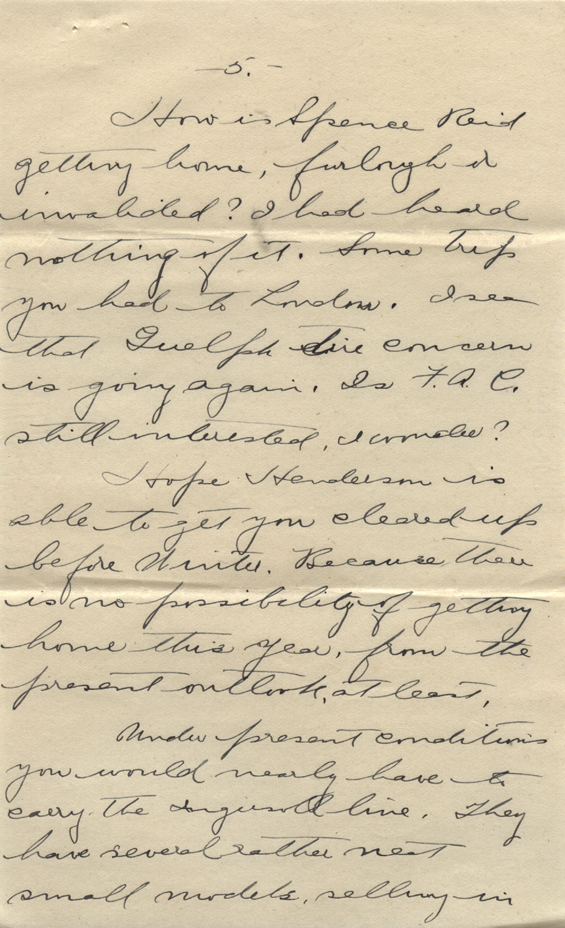 -5.-
How is Spence Reid
getting home, furlough or
invalided? I had heard
nothing of it. Some trip
you had to London. I see
that Guelph tire concern
is going again. Is F.A.C.
still interested, I wonder?
Hope Henderson is
able to get you cleared up
before Winter. Because there
is no possibility of getting
home this year, from the
present outlook, at least.
Under present conditions
you would nearly have to
carry the Ingersoll line. They
have several rather neat
small models, selling in